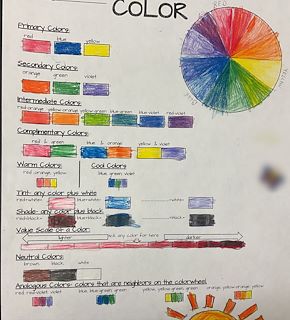 COLOR
RED
Primary Colors:
red blue yellow
Secondary Colors:
orange green violet
Intermediate Colors:
red orange yellow orange yellow green blue green blue violet red violet
Complimentary Colors:
red & green blue & orange yellow & violet
Warm Colors: Cool Colors:
red, orange, yellow blue, green, violet
Tint- any color plus white
red+white= blue+white= +white=
Shade- any color plus black
red+black= blue+black= +black=
Value Scale of a Color:
lighter pick any color for here darker
Neutral Colors:
brown black white
Analogous Colors- colors that are neighbors on the colorwheel
red, red-violet, violet blue, blue green, green yellow, yellow green, green